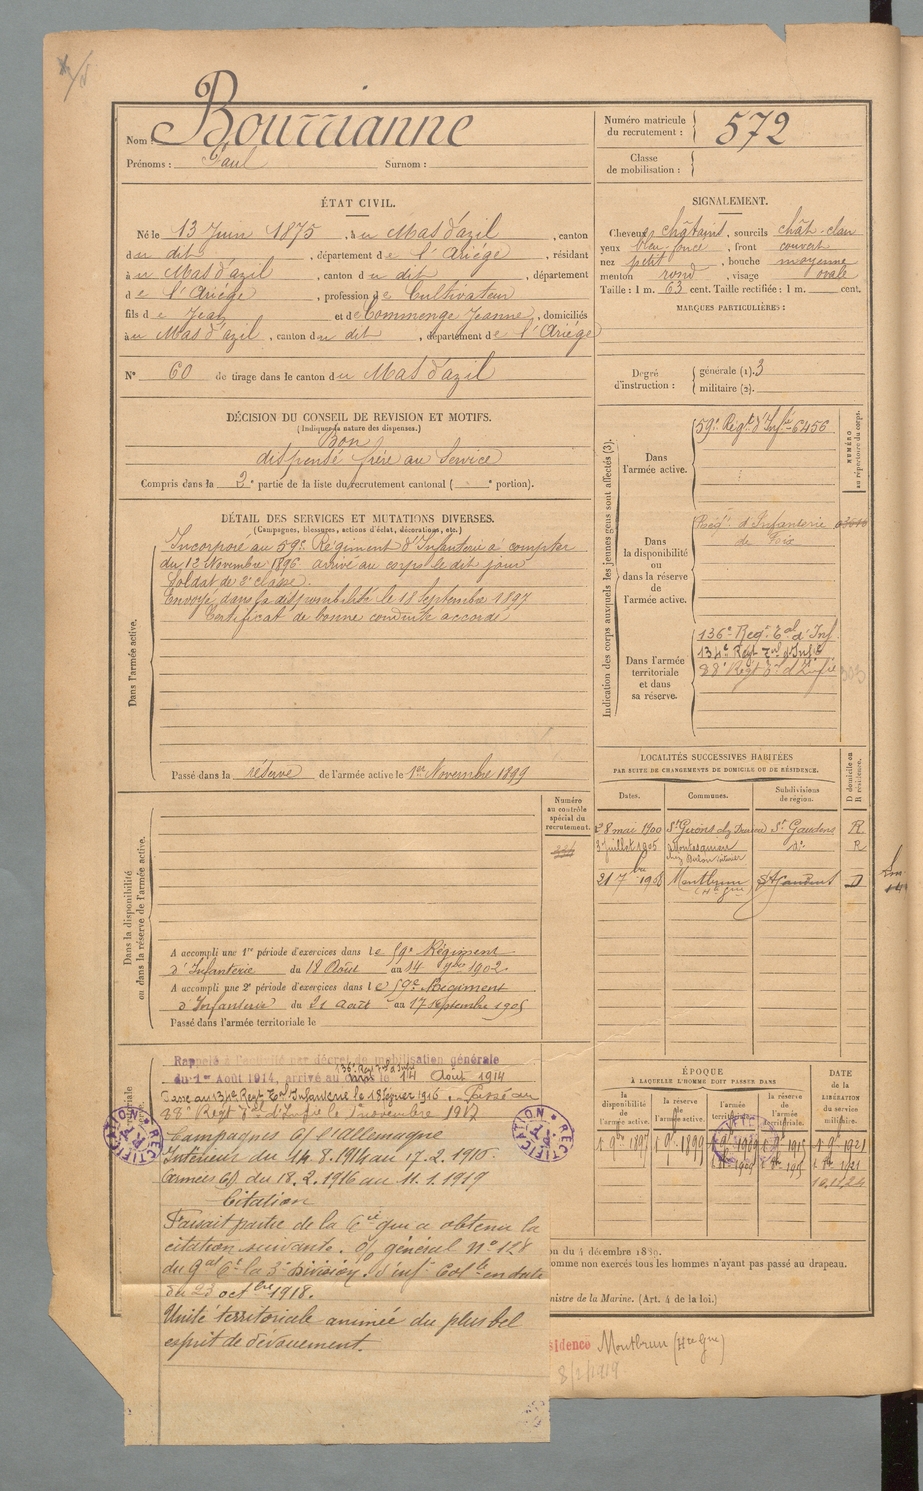 Nom : Bourrianne
Prénoms : Paul Surnom :
Numéro matricule du recrutement : 572
Classe de mobilisation :
ÉTAT CIVIL.
Né le 13 Juin 1875, à u Mas d'azil, canton
d u dit, département d e l'Ariége, résidant
à u Mas d'azil, canton d u dit, département
d e l'Ariége, profession d e Cultivateur
fils d e Jean et d e Commenge Jeanne, domiciliés
à u Mas d'azil, canton d u dit, département d e l'Ariége
N° 60 de tirage dans le canton d u Mas d'azil
SIGNALEMENT.
Cheveux châtains, sourcils chât-clair
yeux bleu foncé, front couvert
nez petit, bouche moyenne
menton rond, visage ovale
Taille : 1 m. 63 cent. Taille rectifiée : 1 m. cent.
MARQUES PARTICULIÈRES :
Degré d'instruction : générale (1). 3
militaire (2).
DÉCISION DU CONSEIL DE REVISION ET MOTIFS.
(Indiquer la nature des dispenses.)
Bon
dispensé frère au Service
Compris dans la 2e partie de la liste du recrutement cantonal ( e portion).
DÉTAIL DES SERVICES ET MUTATIONS DIVERSES.
(Campagnes, blessures, actions d'éclat, décorations, etc.)
Dans l'armée active.
Incorporé au 59e Régiment d'Infanterie à compter
du 12 Novembre 1896 arrivé au corps le dit jour
Soldat de 2e classe.
Envoyé dans la disponibilité le 18 Septembre 1897
Certificat de bonne conduite accordé
Passé dans la réserve de l'armée active le 1er Novembre 1899
Indication des corps auxquels les jeunes gens sont affectés (3).
NUMÉRO au répertoire du corps.
Dans l'armée active.
59e Régt d'Infie 6456
Dans la disponibilité ou dans la réserve de l'armée active.
Régt d'Infanterie
de Foix
Dans l'armée territoriale et dans sa réserve.
136e Regt Tal d'Inf
134e Régt Tal d'Infie
88e Régt Tal d'Infie
LOCALITÉS SUCCESSIVES HABITÉES
PAR SUITE DE CHANGEMENTS DE DOMICILE OU DE RÉSIDENCE.
Dates. Communes. Subdivisions de région. D domicile ou R résidence.
28 mai 1900 St Girons St Gaudens R
3 Juillet 1905 Montesquieu do R
21 7bre 1908 Montbrun (Hte Gne) St Gaudens D
Dans la disponibilité ou dans la réserve de l'armée active.
Numéro au contrôle spécial du recrutement.
A accompli une 1re période d'exercices dans le 59e Régiment
d'Infanterie du 18 Août au 14 7bre 1902.
A accompli une 2e période d'exercices dans le 59e Régiment
d'Infanterie du 21 Août au 17 Septembre 1905
Passé dans l'armée territoriale le
Rappelé à l'activité par décret de mobilisation générale
136e Regt Tal d'Infie
du 1er Août 1914, arrivé au corps le 14 Août 1914
Passé au 134e Regt Tal Infanterie le 18 février 1916. Passé au
88e Régt Tal d'Infie le 1 novembre 1917
Campagnes c/ l'Allemagne
Intérieur du 14.8.1914 au 17.2.1916.
Armées c/ du 18.2.1916 au 11.1.1919
Citation
Faisait partie de la Cie qui a obtenu la
citation suivante. O/ général No 128
du Gal Ct la 3e Division d'inf Colle en date
du 23 octbre 1918.
Unité territoriale animée du plus bel
esprit de dévouement.
RECTIFICATION
RECTIFICATION
ÉPOQUE
À LAQUELLE L'HOMME DOIT PASSER DANS
la disponibilité de l'armée active. la réserve de l'armée active. l'armée territoriale. la réserve de l'armée territoriale.
DATE de la LIBÉRATION du service militaire.
1 9bre 1897 1 9bre 1899 1 9bre 1909 1 9bre 1915 1 9bre 1921
10.11.24
on du 4 décembre 1889.
omme non exercés tous les hommes n'ayant pas passé au drapeau.
inistre de la Marine. (Art. 4 de la loi.)
sidence Montbrun (Hte Gne)
8/2/1919